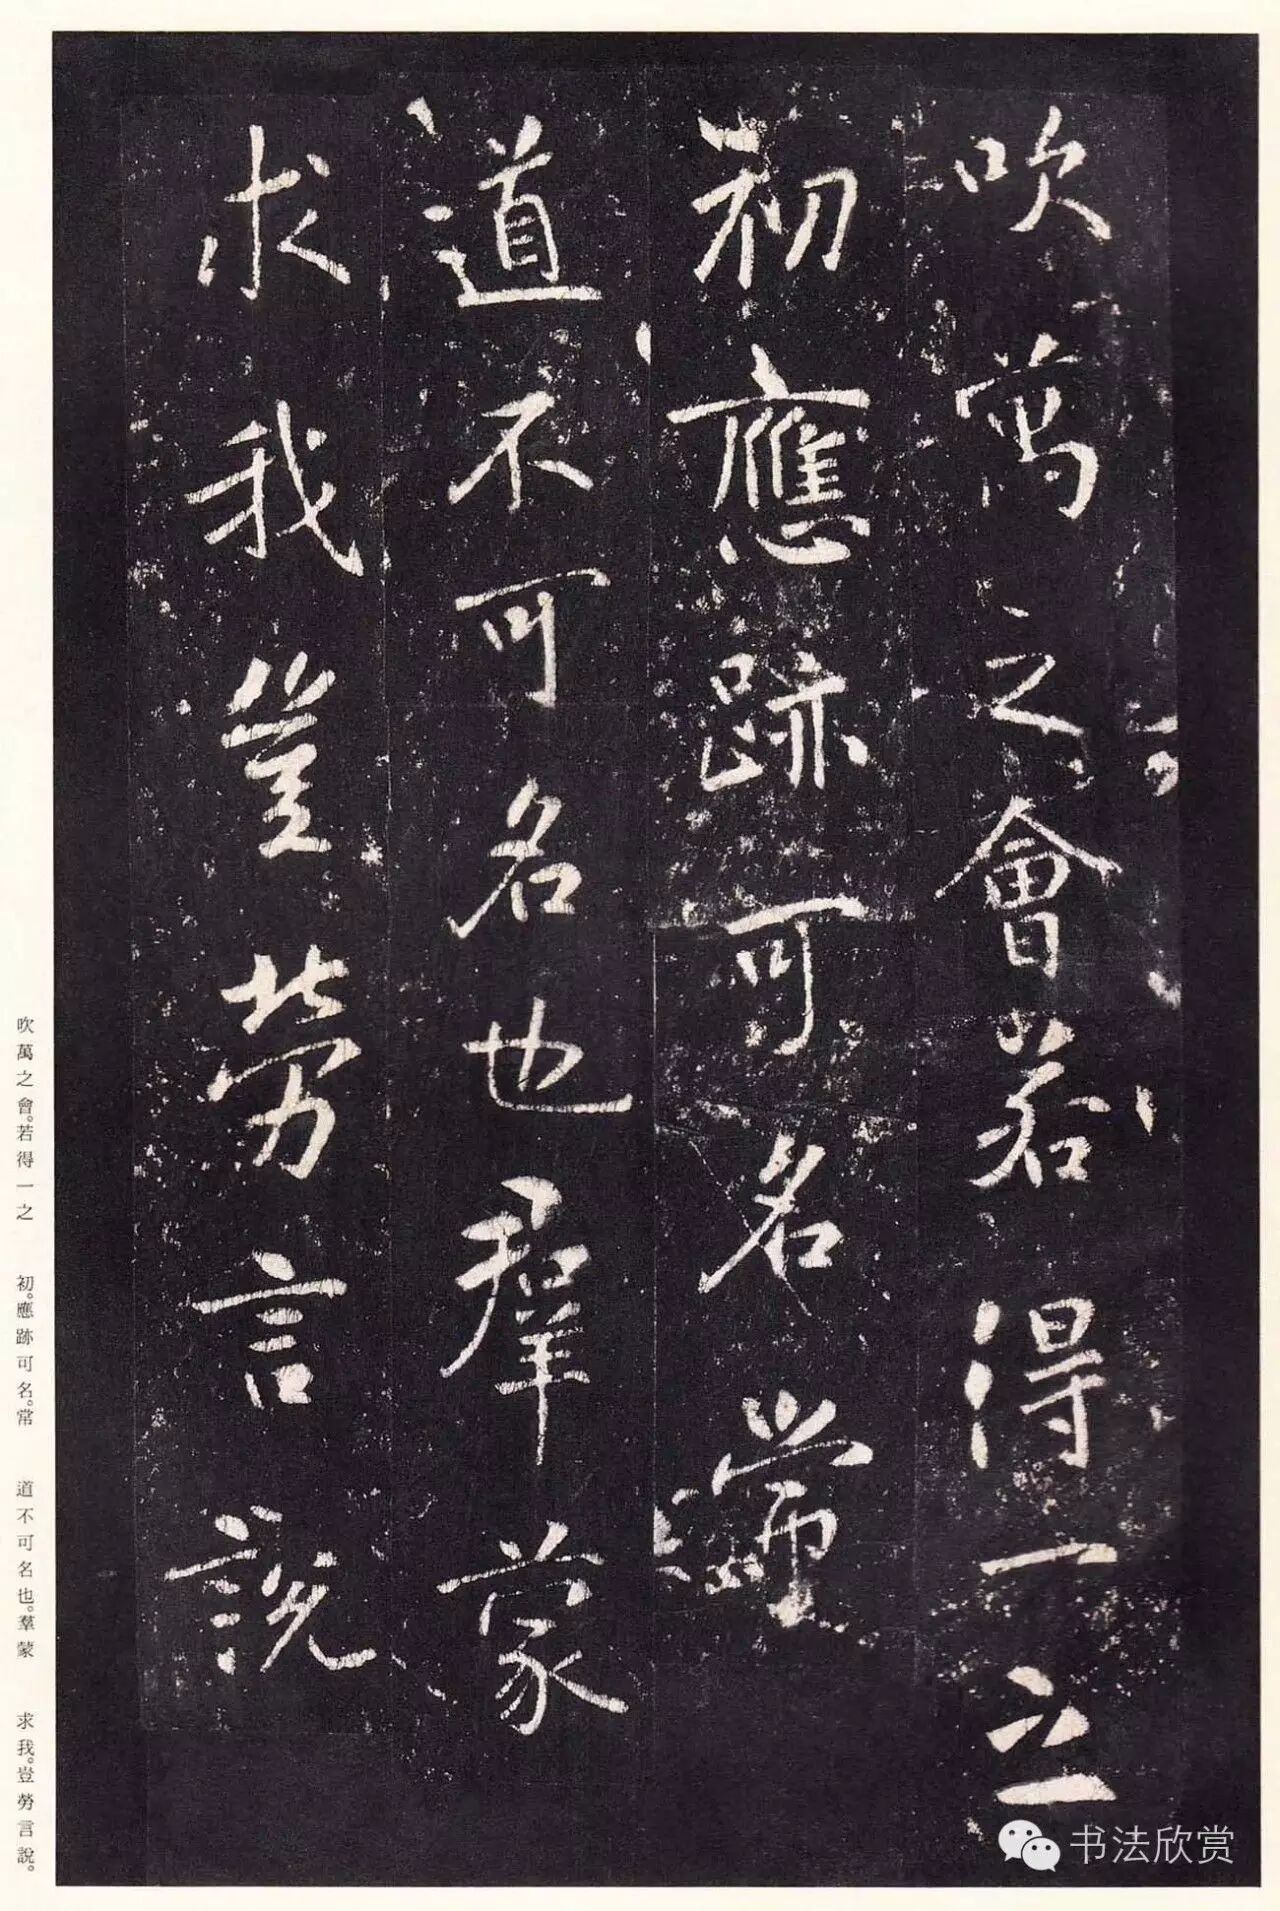 吹萬之會若得一之
初應跡可名常
道不可名也羣蒙
求我豈勞言說
吹萬之會。若得一之 初。應跡可名。常 道不可名也。羣蒙 求我。豈勞言說。
书法欣赏